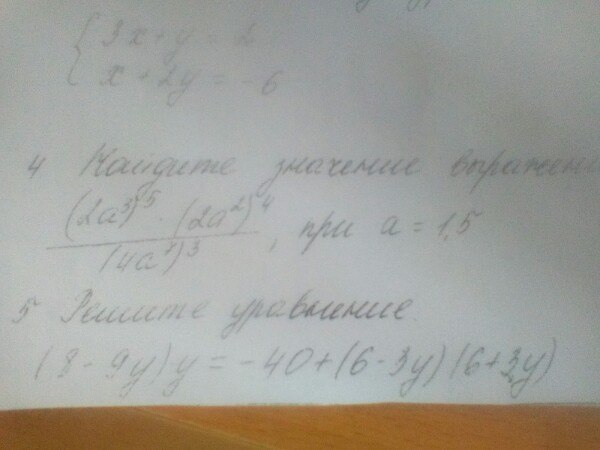 3x + y = 2
x + 2y = -6
4 Найдите значение выражени
(2a³)⁵ · (2a²)⁴
(4a⁷)³ , при a = 1,5
5 Решите уравнение.
(8 - 9y) y = -40 + (6 - 3y)(6 + 3y)